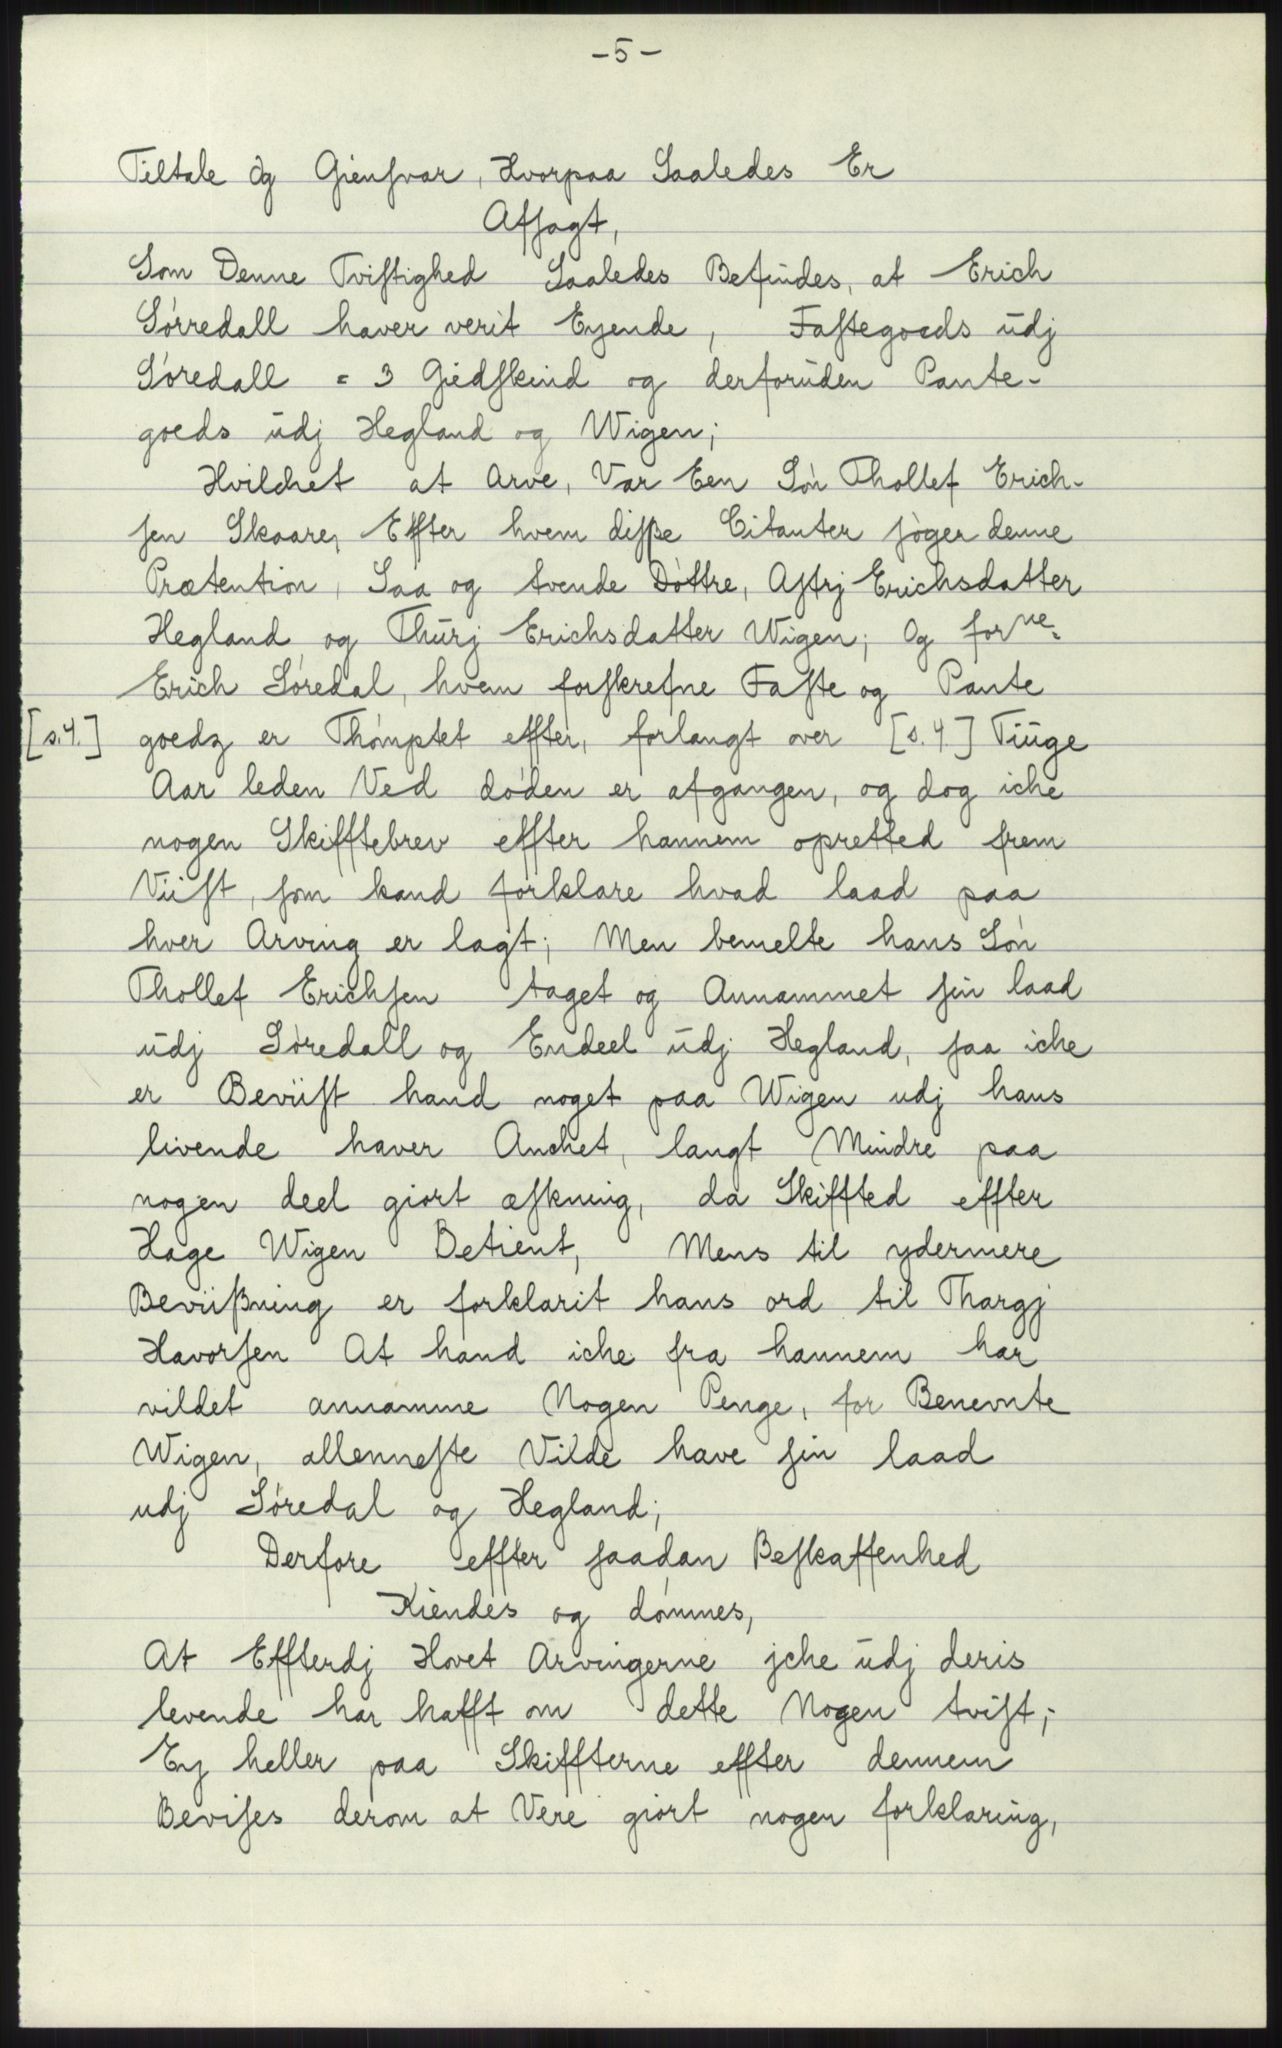 -5-
Tiltale Og Giensvar, Hvorpaa Saaledes Er
Afsagt,
Som Denne Tvistighed Saaledes Befindes, at Erich
Sørredall haver verit Eyende, Fastegoeds udj
Søredall = 3 Giedskind og derforuden Pante-
goeds udj Hegland og Wigen;
Hvilchet at Arve, Var Een Søn Thollef Erich-
sen Skaare, Effter hvem disse Citanter søger denne
Prætention, Saa og tvende Døttre, Astrj Erichsdatter
Hegland og Thurj Erichsdatter Wigen; Og forne:
Erich Søredal, hvem forskrefne Faste og Pante
[s.4.] goedz er Thømptet effter, forlangt over [s.4] Tiuge
Aar leden Ved døden er afgangen, og dog iche
nogen Skifftebrev effter hannem opretted frem
Viist, som kand forklare hvad laad paa
hver Arving er lagt; Men bemelte hans Søn
Thollef Erichsen taget og Annammet sin laad
udj Søredall og Endeel udj Hegland, saa iche
er Beviist hand noget paa Wigen udj hans
livende haver Anchet, langt Mindre paa
nogen deel giort æskning, da Skiffted effter
Hage Wigen Betient, Mens til ydermere
Beviisning er forklarit hans ord til Thargj
Havorsen At hand iche fra hannem har
vildet annamme Nogen Penge, for Benevnte
Wigen, allenneste Vilde have sin laad
udj Søredal og Hegland;
Derfore effter saadan Beskaffenhed
Kiendes og dømmes,
At Effterdj Hovet Arvingerne jche udj deris
levende har hafft om dette Nogen tvist;
Ey heller paa Skiffterne effter dennem
Bevises derom at Vere giort nogen forklaring,